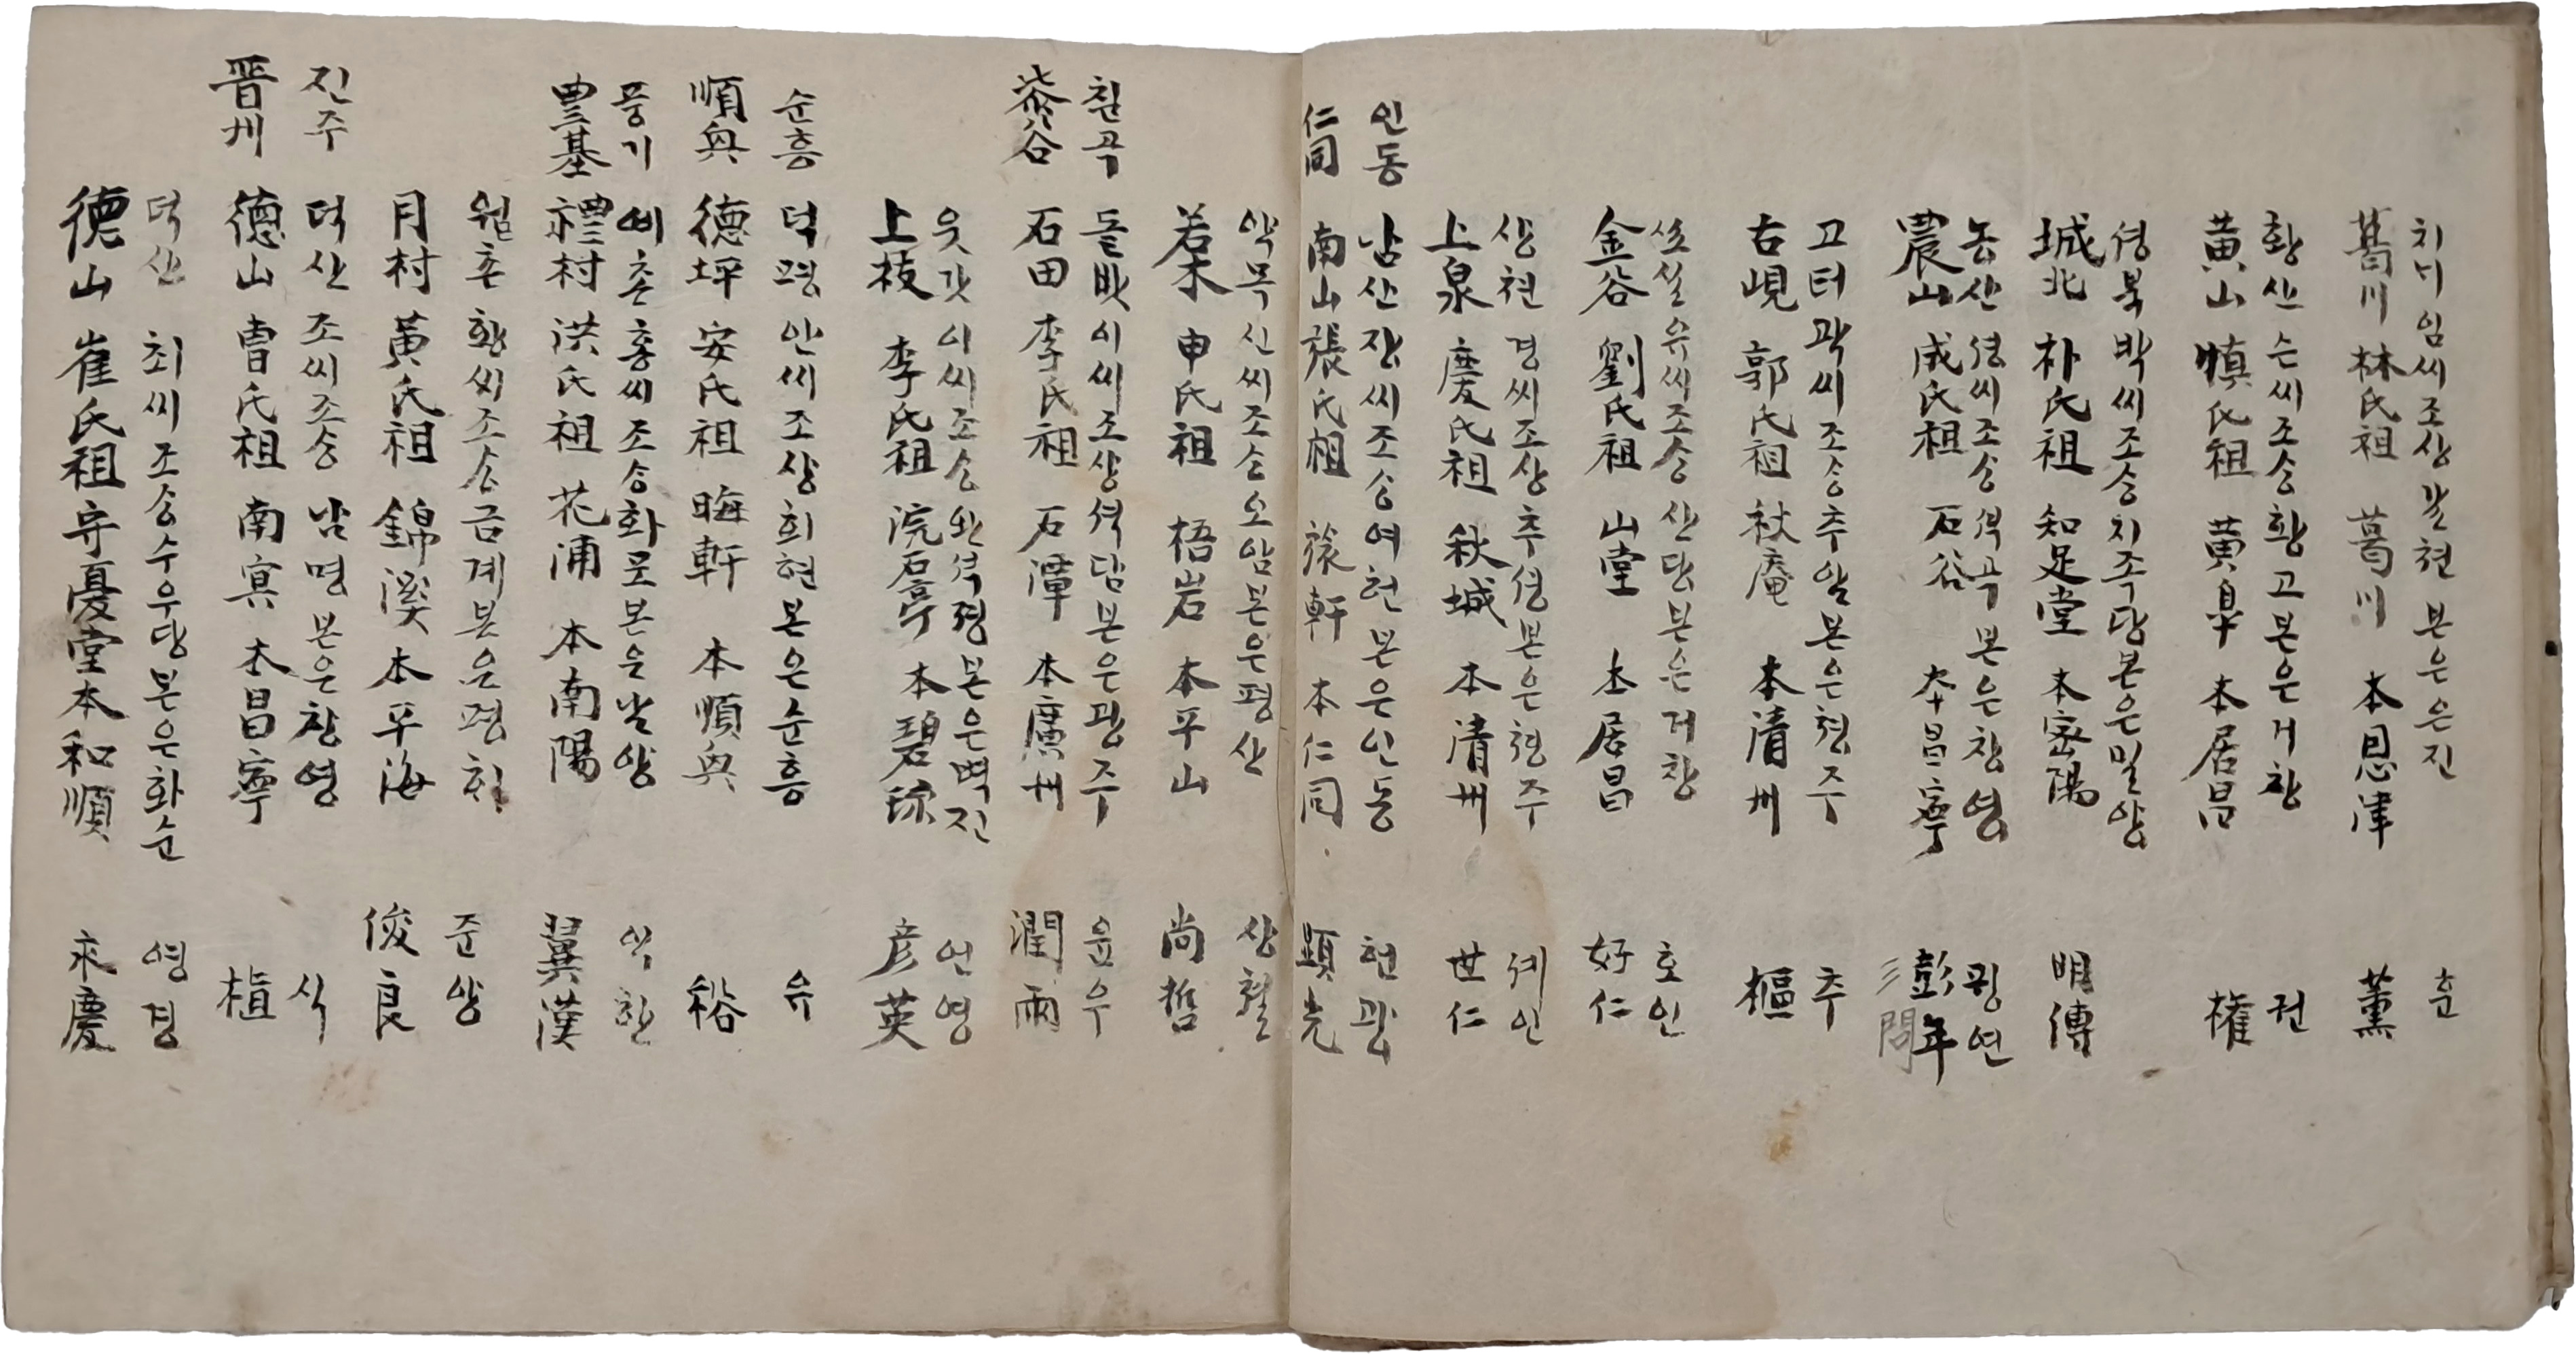 치ㄴㅣ 임씨조상 갈쳔 본은은진 훈
葛川 林氏祖 葛川 本恩津 薰
황산 슨씨조숭 황고 본은거창 권
黃山 愼氏祖 黃皐 本居昌 權
셩북 박씨조숭 지족당 본은밀양
城北 朴氏祖 知足堂 本密陽 明傅
농산 셩씨조숭 셕곡 본은창영 핑연
農山 成氏祖 石谷 本昌寧 彭年
고터 곽씨조숭 추암 본은쳥주 추
古峴 郭氏祖 秋庵 本淸州 樞
유씨조숭 산당 본은거창 호인
金谷 劉氏祖 山堂 本居昌 好仁
상쳔 경씨조상 추셩 본은쳥주 셰인
上泉 慶氏祖 秋城 本淸州 世仁
인동 남산 장씨조숭 여헌 본은인동 현광
仁同 南山 張氏祖 旅軒 本仁同 顯光
약목 신씨조손 오암 본은평산 상철
若木 申氏祖 梧岩 本平山 尚哲
칠곡 돌밧 이씨조상 셕담 본은광주 윤우
漆谷 石田 李氏祖 石潭 本廣州 潤雨
웃갓 이씨조숭 완셕졍 본은벽진 언영
上枝 李氏祖 浣石亭 本碧珍 彦英
순흥 덕평 안씨조상 회헌 본은순흥 유
順興 德坪 安氏祖 晦軒 本順興 裕
풍기 예촌 홍씨조숭 화포 본은남양 익한
豊基 禮村 洪氏祖 花浦 本南陽 翼漢
월촌 황씨조숭 금계 본은평히 준양
月村 黃氏祖 錦溪 本平海 俊良
진주 덕산 조씨조숭 남명 본은창영 식
晋州 德山 曺氏祖 南冥 本昌寧 植
덕산 최씨조숭 수우당 본은화순 영경
德山 崔氏祖 守憂堂 本和順 永慶